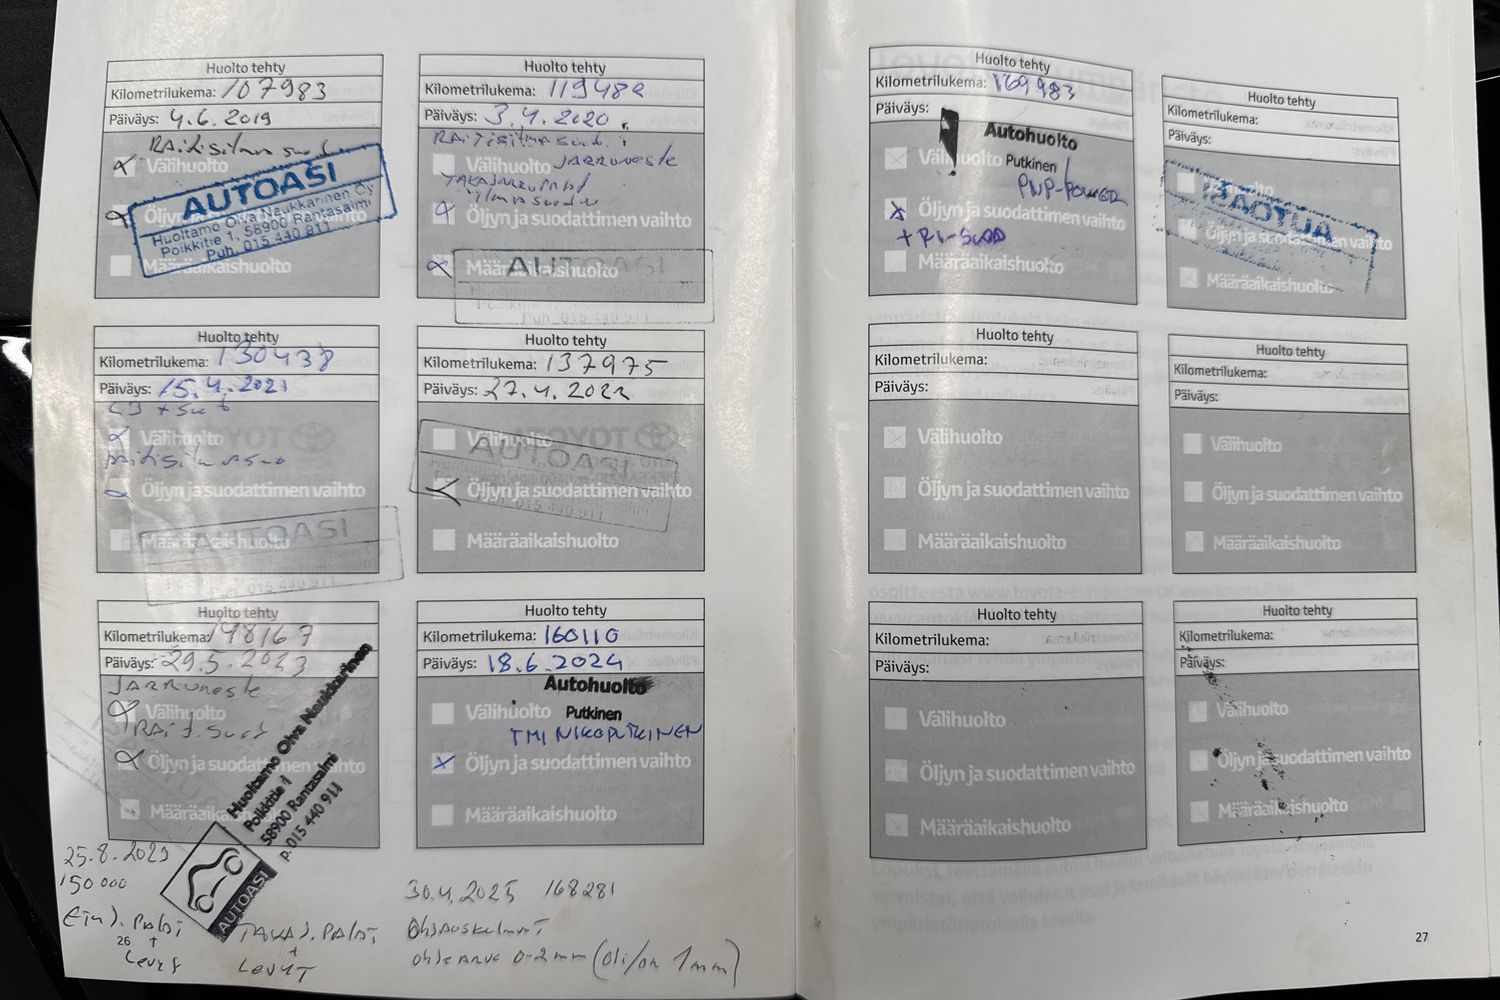 Huolto tehty
Kilometrilukema: 107983
Päiväys: 4.6.2019
Raitisilma suod
Välihuolto
Öljyn ja suodattimen vaihto
Määräaikaishuolto
AUTOASI
Huoltamo Oiva Naukkarinen Oy
Poikkitie 1, 58900 Rantasalmi
Puh. 015 440 911
Huolto tehty
Kilometrilukema: 119482
Päiväys: 3.4.2020
RAITISilmasuod.
Välihuolto JARRUNeste
TAKAJARRUPALAT
ilmasuodin
Öljyn ja suodattimen vaihto
Määräaikaishuolto
AUTOASI
Puh. 015 440 911
Huolto tehty
Kilometrilukema: 130438
Päiväys: 15.4.2021
Välihuolto
Öljyn ja suodattimen vaihto
Määräaikaishuolto
AUTOASI
Puh. 015 440 911
Huolto tehty
Kilometrilukema: 137975
Päiväys: 27.4.2022
Välihuolto
Öljyn ja suodattimen vaihto
Määräaikaishuolto
AUTOASI
Huolto tehty
Kilometrilukema: 148167
Päiväys: 29.5.2023
JARRUNeste
Välihuolto
RAIT. Suod
Öljyn ja suodattimen vaihto
Määräaikaishuolto
Huoltamo Oiva Naukkarinen
Poikkitie 1
58900 Rantasalmi
p. 015 440 911
AUTOASI
Huolto tehty
Kilometrilukema: 160110
Päiväys: 18.6.2024
Autohuolto
Putkinen
TMI NIKO PUTKINEN
Välihuolto
Öljyn ja suodattimen vaihto
Määräaikaishuolto
25.8.2023
150 000
Etu J. PALAT
+
LevyT
TAKA J. PALAT
+
LevyT
26
30.4.2025 168281
Ohjauskulmat
ohjearvo 0-2mm (oli/on 1mm)
Huolto tehty
Kilometrilukema: 169983
Päiväys:
Autohuolto
Putkinen
Välihuolto
PNP-POWER
Öljyn ja suodattimen vaihto
+ RI-SUOD
Määräaikaishuolto
Huolto tehty
Kilometrilukema:
Päiväys:
Öljyn ja suodattimen vaihto
Määräaikaishuolto
Huolto tehty
Kilometrilukema:
Päiväys:
Välihuolto
Öljyn ja suodattimen vaihto
Määräaikaishuolto
Huolto tehty
Kilometrilukema:
Päiväys:
Välihuolto
Öljyn ja suodattimen vaihto
Määräaikaishuolto
Huolto tehty
Kilometrilukema:
Päiväys:
Välihuolto
Öljyn ja suodattimen vaihto
Määräaikaishuolto
Huolto tehty
Kilometrilukema:
Päiväys:
Välihuolto
Öljyn ja suodattimen vaihto
Määräaikaishuolto
27